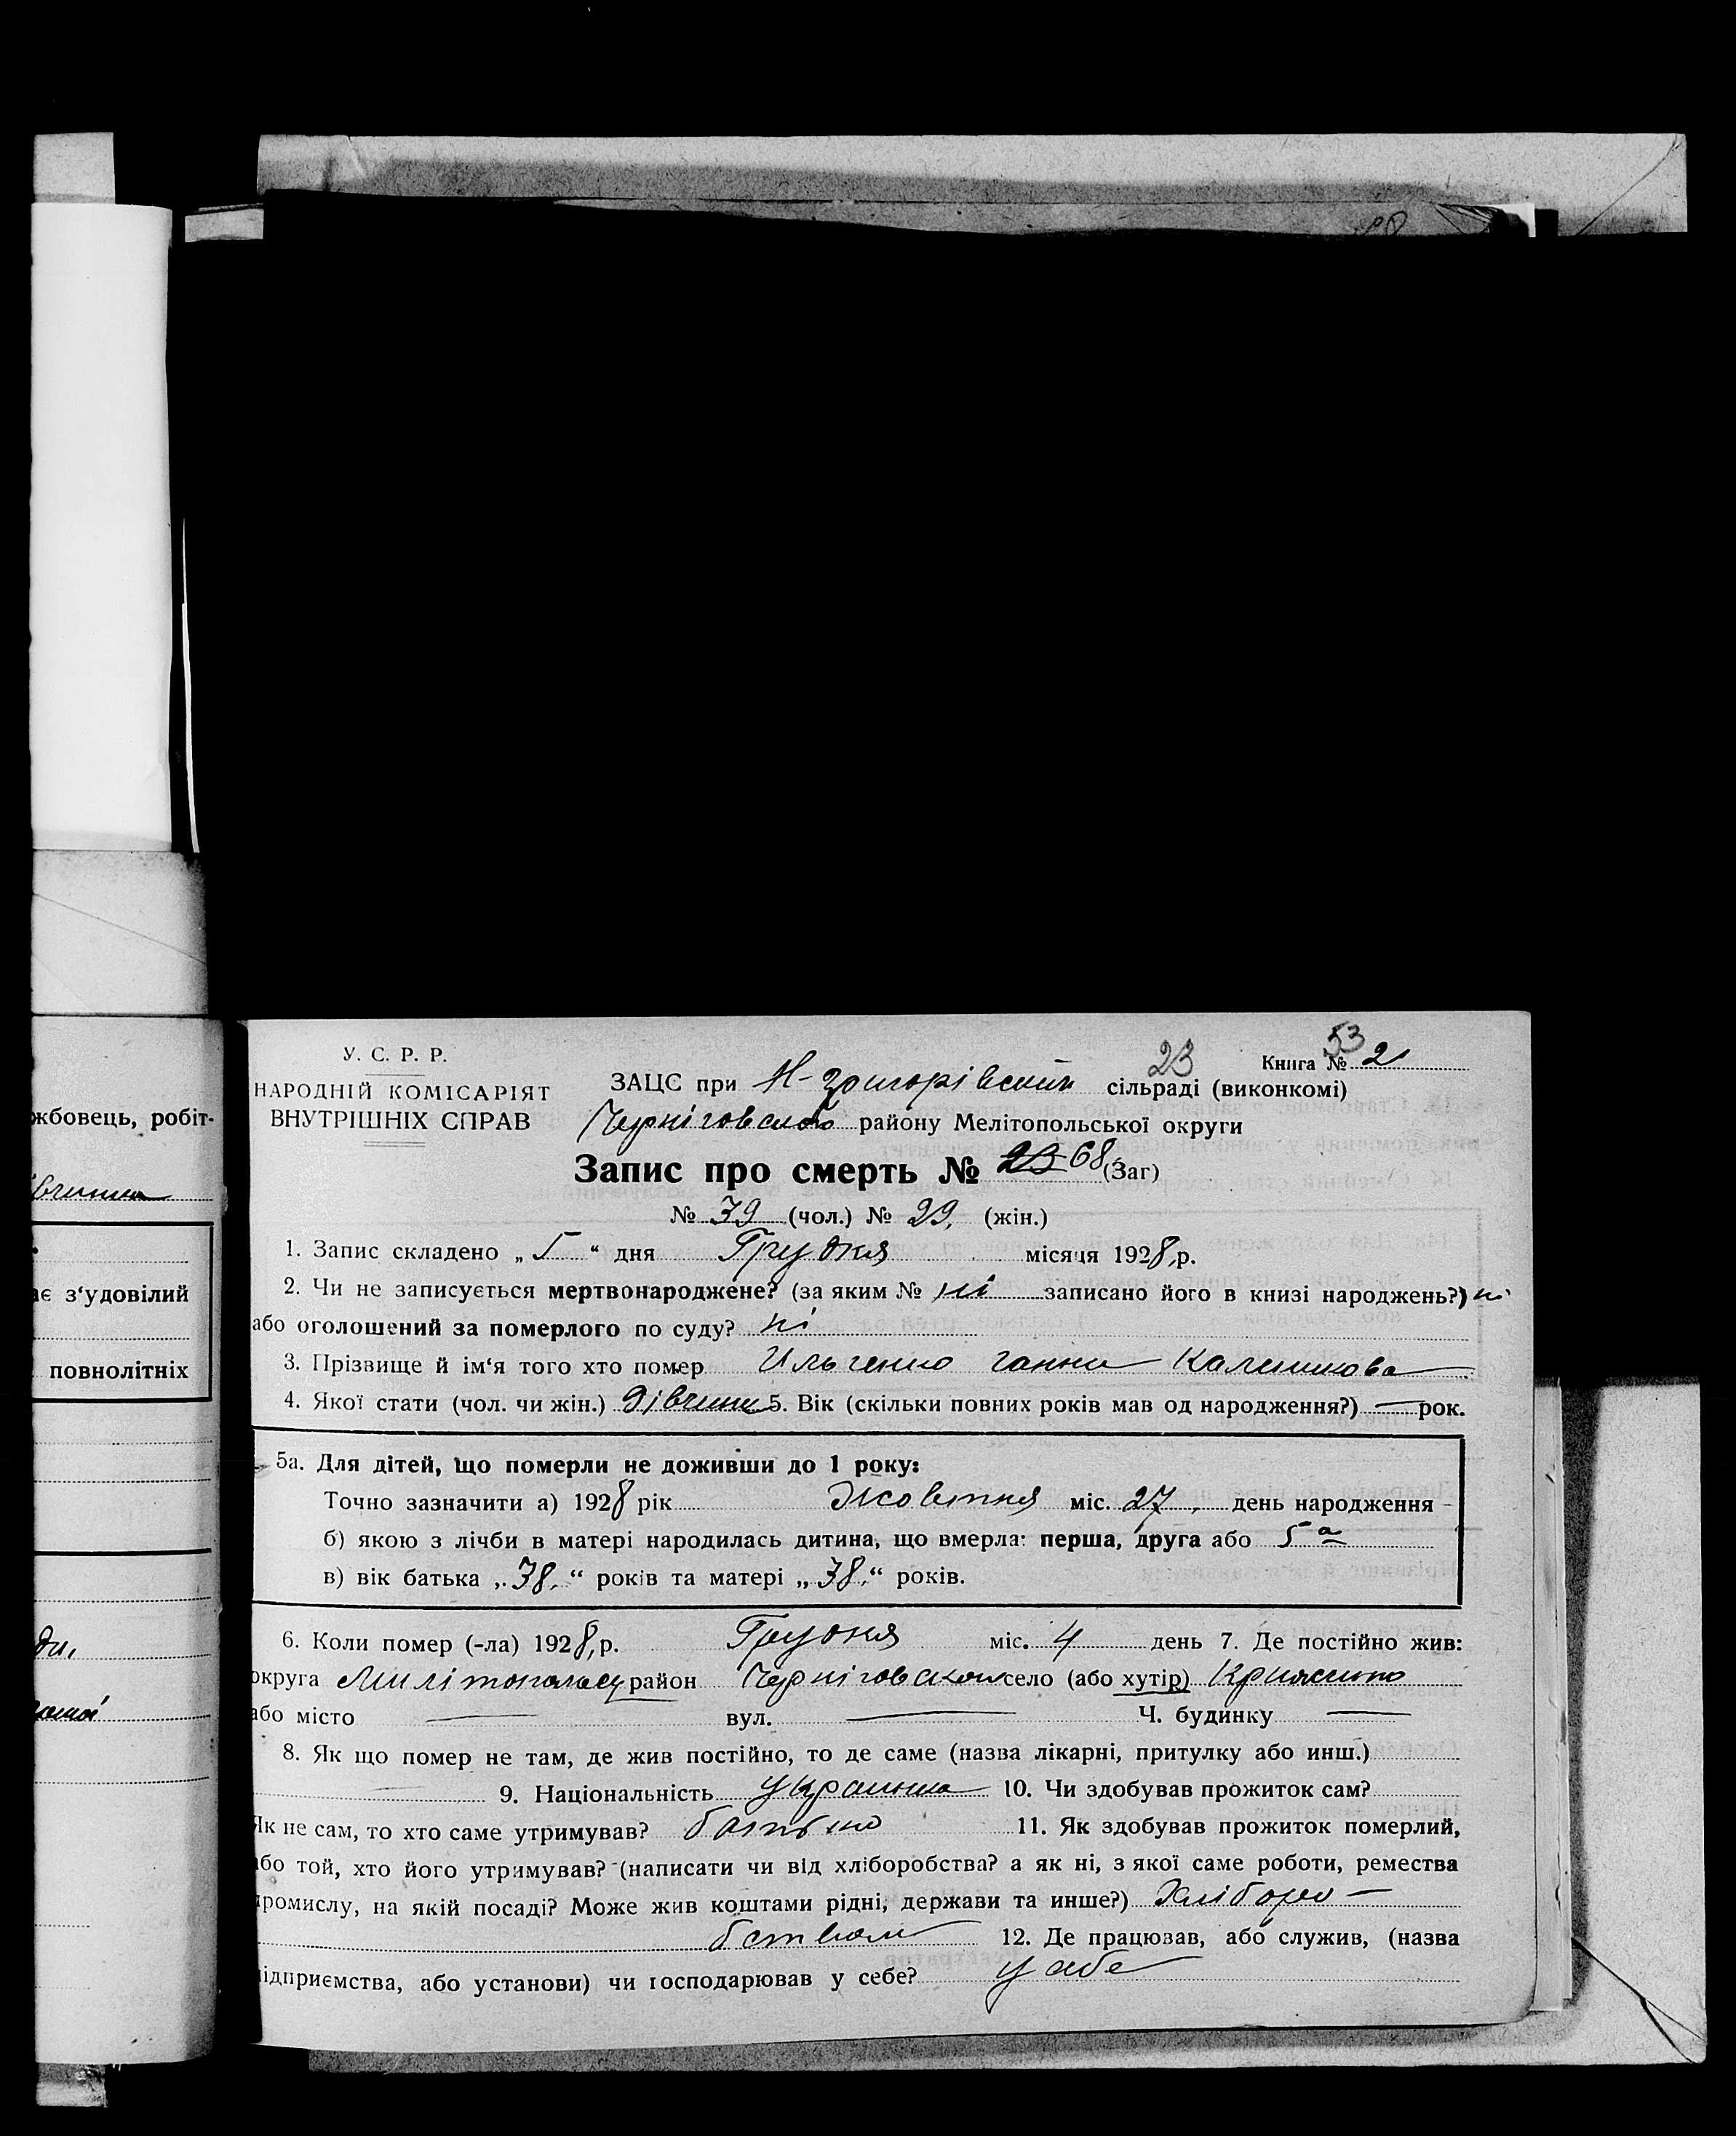 жбовець, робіт-
ає з'удовілий
повнолітніх
У. С. Р. Р.
НАРОДНІЙ КОМІСАРІЯТ
ВНУТРІШНІХ СПРАВ
53
23
Книга № 2
ЗАЦС при сільраді (виконкомі)
району Мелітопольської округи
Запис про смерть № 23 68 (Заг)
№ 39 (чол.) № 29. (жін.)
1. Запис складено „ 5 “ дня Грудня місяця 1928 р.
2. Чи не записується мертвонароджене? (за яким № ні записано його в книзі народжень?) ні
або оголошений за померлого по суду? ні
3. Прізвище й ім'я того хто помер Ильченко Ганна
4. Якої стати (чол. чи жін.) дівчина 5. Вік (скільки повних років мав од народження?) — рок.
5а. Для дітей, що померли не доживши до 1 року:
Точно зазначити а) 1928 рік Жовтня міс. 27 день народження
б) якою з лічби в матері народилась дитина, що вмерла: перша, друга або 5а
в) вік батька „38.“ років та матері „38.“ років.
6. Коли помер (-ла) 1928, р. Грудня міс. 4 день 7. Де постійно жив:
округа район село (або хутір)
або місто — вул. — Ч. будинку —
8. Як що помер не там, де жив постійно, то де саме (назва лікарні, притулку або инш.)
— 9. Національність українка 10. Чи здобував прожиток сам?
Як не сам, то хто саме утримував? батько 11. Як здобував прожиток померлий,
або той, хто його утримував? (написати чи від хліборобства? а як ні, з якої саме роботи, ремества
промислу, на якій посаді? Може жив коштами рідні, держави та инше?) Хліборо-
бством 12. Де працював, або служив, (назва
підприємства, або установи) чи господарював у себе? у себе